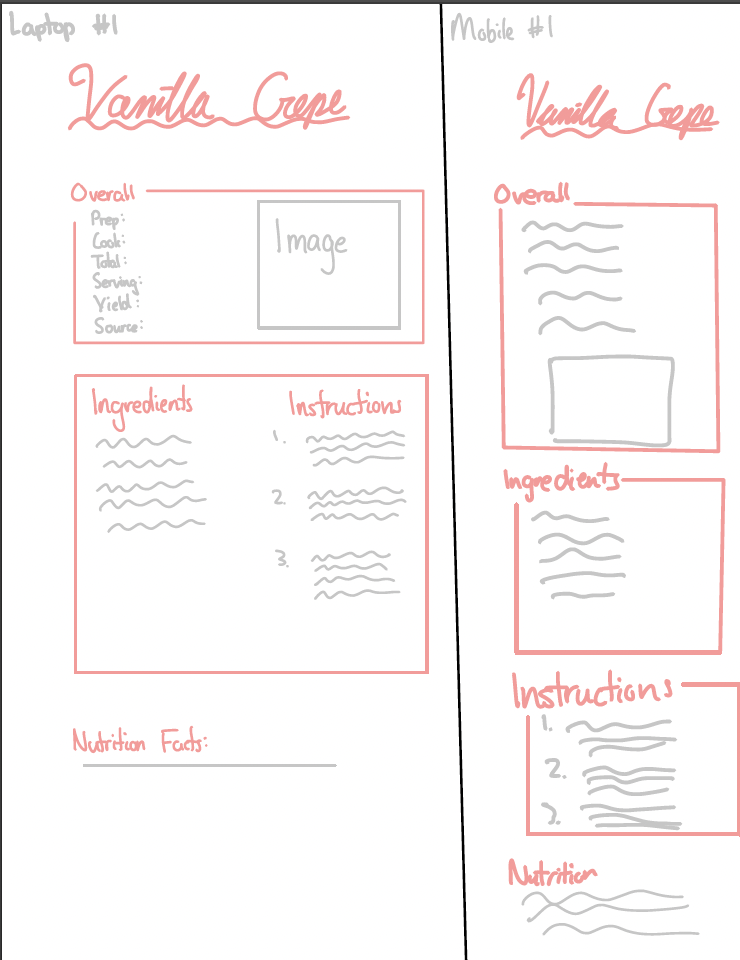 Laptop #1
Vanilla Crepe
Overall
Prep:
Cook:
Total:
Serving:
Yield:
Source:
Image
Ingredients
Instructions
1.
2.
3.
Nutrition Facts:
Mobile #1
Vanilla Crepe
Overall
Ingredients
Instructions
1.
2.
3.
Nutrition